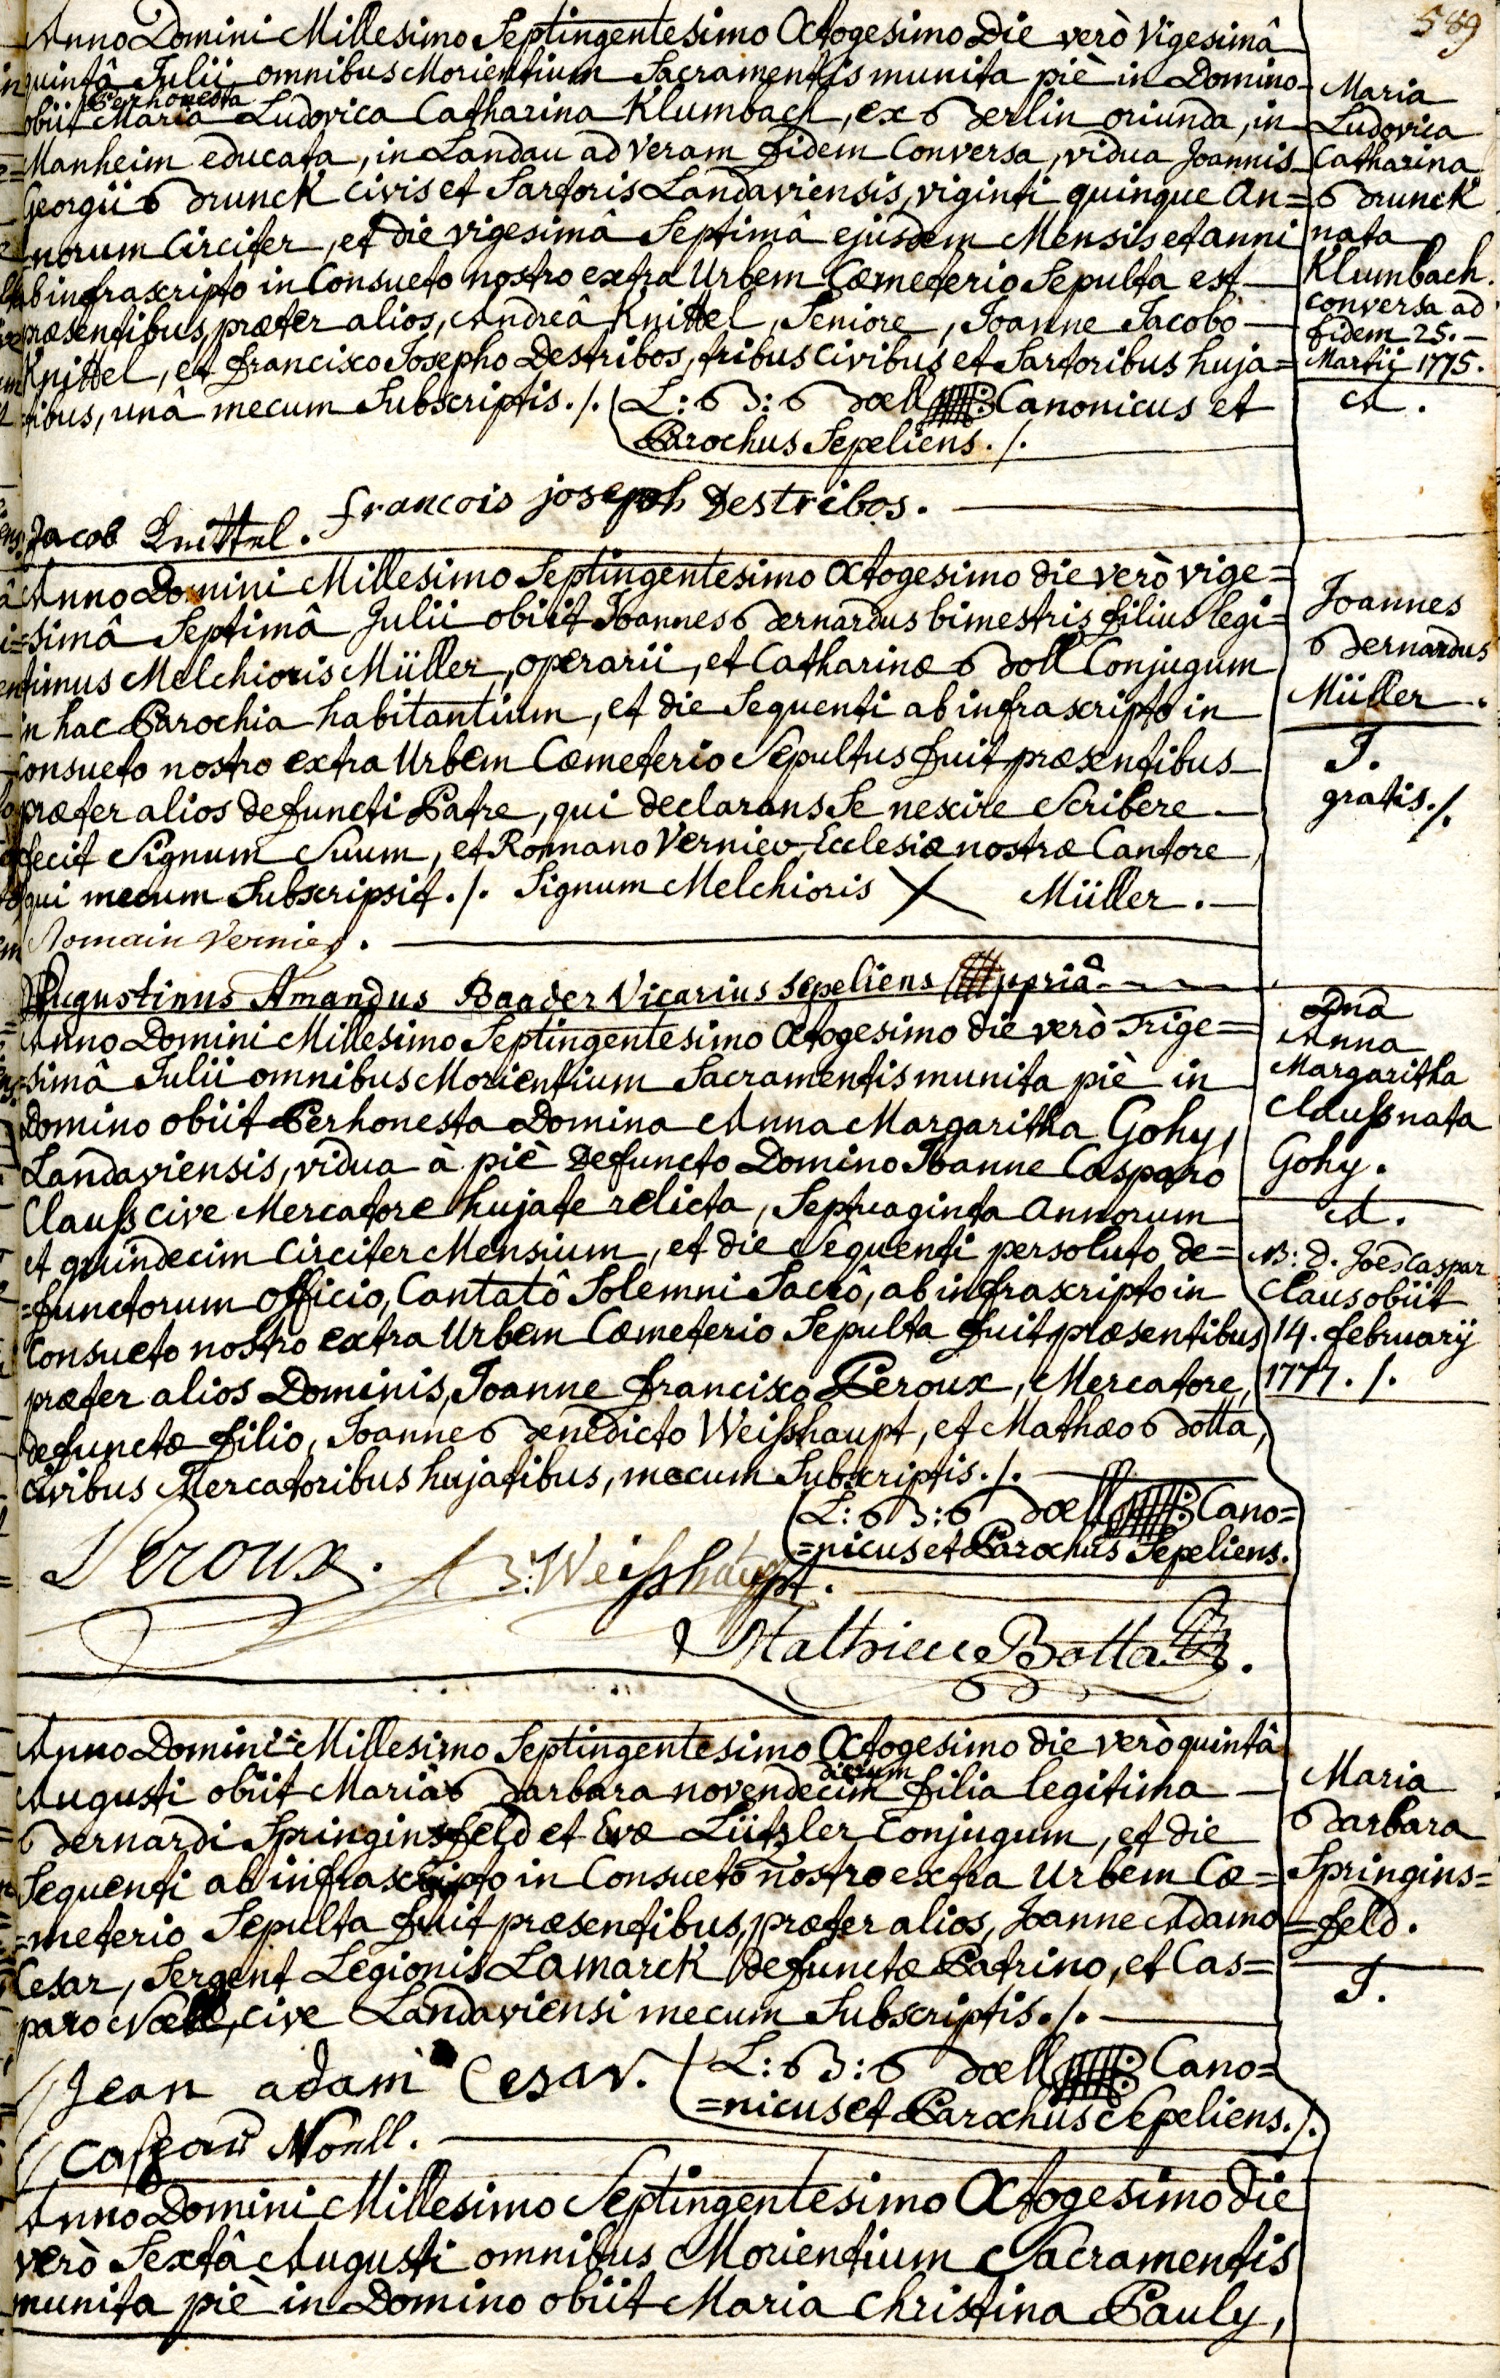 589
Anno Domini Millesimo Septingentesimo Octogesimo Die verò Vigesimâ
quintâ Julii omnibus Morientium Sacramentis munita piè in Domino
Perhonesta
obiit Maria Ludovica Catharina Klumbach, ex Berlin oriunda, in
Manheim educata, in Landau ad Veram fidem Conversa, vidua Joannis
Georgii Brunck civis et Sartoris Landaviensis, viginti quinque An=
norum Circiter, et die vigesimâ Septimâ ejusdem Mensis et anni
ab infrascripto in Consueto nostro extra Urbem Cœmeterio Sepulta est
præsentibus, præter alios, Andreâ Knittel, Seniore, Joanne Jacobo
Knittel, et francisco Josepho Destribos, tribus Civibus et Sartoribus huja=
tibus, unâ mecum Subscriptis ./. L: B: Bœll Canonicus et
Parochus Sepeliens ./.
Maria
Ludovica
Catharina
Brunck
nata
Klumbach.
conversa ad
fidem 25.
Martii 1775.
A.
francois joseph Destribos.
Jacob Knittel.
Anno Domini Millesimo Septingentesimo Octogesimo die verò vige=
=simâ Septimâ Julii obiit Joannes Bernardus bimestris filius legi=
timus Melchioris Müller, operarii, et Catharinæ Boll Conjugum
in hac Parochia habitantium, et die Sequenti ab infrascripto in
Consueto nostro extra Urbem Cœmeterio Sepultus fuit præsentibus
præter alios defuncti Patre, qui declarans Se nescire Scribere
fecit Signum Suum, et Romano Vernier Ecclesiæ nostræ Cantore,
qui mecum Subscripsit ./. Signum Melchioris X Müller.
Romain Vernier.
Augustinus Amandus Baader Vicarius Sepeliens ppriâ
Joannes
Bernardus
Müller.
J.
gratis ./.
Anno Domini Millesimo Septingentesimo Octogesimo die verò Trige=
=simâ Julii omnibus Morientium Sacramentis munita piè in
Domino obiit Perhonesta Domina Anna Margaritha Gohy,
Landaviensis, vidua à piè Defuncto Domino Joanne Casparo
Clauß cive Mercatore hujate relicta, Septuaginta Annorum
et quindecim Circiter Mensium, et die Sequenti persoluto de=
=functorum officio, Cantatô Solemni Sacrô, ab infrascripto in
Consueto nostro extra Urbem Cœmeterio Sepulta fuit præsentibus
præter alios Dominis, Joanne francisco Peroux, Mercatore,
defunctæ filio, Joanne Benedicto Weißhaupt, et Mathæo Botta,
Civibus Mercatoribus hujatibus, mecum Subscriptis ./.
L: B: Bœll Cano=
=nicus et Parochus Sepeliens.
Dna
Anna
Margaritha
Clauß nata
Gohy.
A.
NB: D. Joes Caspar
Claus obiit
14. februarÿ
1777 ./.
Peroux.
B: Weißhaupt.
Mathieu Botta.
Anno Domini Millesimo Septingentesimo Octogesimo die verò quintâ
dierum
Augusti obiit Maria Barbara novendecim filia legitima
Bernardi Springinsfeld et Evæ Lützler Conjugum, et die
Sequenti ab infrascripto in Consueto nostro extra Urbem Cœ=
=meterio Sepulta fuit præsentibus, præter alios, Joanne Adamo
Cesar, Sergent Legionis Lamarck defunctæ Patrino, et Cas=
paro Noell, cive Landaviensi mecum Subscriptis ./.
L: B: Bœll Cano=
=nicus et Parochus Sepeliens ./.
Maria
Barbara
Springins=
=feld.
J.
Jean adam Cesar.
Caspar Noell.
Anno Domini Millesimo Septingentesimo Octogesimo die
verò Sextâ Augusti omnibus Morientium Sacramentis
munita piè in Domino obiit Maria Christina Pauly,